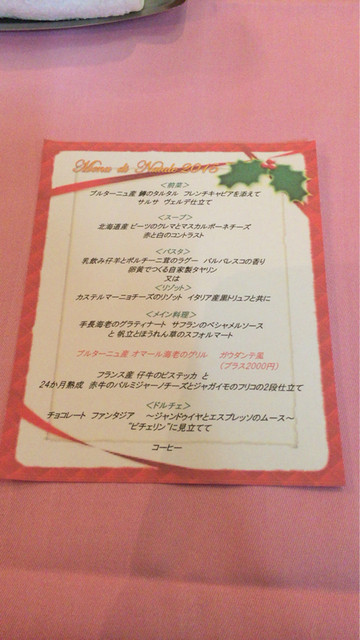 Menu di Natale 2016
<前菜>
ブルターニュ産 鱒のタルタル フレンチキャビアを添えて
サルサ ヴェルデ仕立て
<スープ>
北海道産 ビーツのクレマとマスカルポーネチーズ
赤と白のコントラスト
<パスタ>
乳飲み仔羊とポルチーニ茸のラグー バルバレスコの香り
卵黄でつくる自家製タヤリン
又は
<リゾット>
カステルマーニョチーズのリゾット イタリア産黒トリュフと共に
<メイン料理>
手長海老のグラティナート サフランのベシャメルソース
と 帆立とほうれん草のスフォルマート
ブルターニュ産 オマール海老のグリル ガウダンテ風
(プラス2000円)
フランス産 仔牛のビステッカ と
24か月熟成 赤牛のパルミジャーノチーズとジャガイモのフリコの2段仕立て
<ドルチェ>
チョコレート ファンタジア ～ジャンドゥイヤとエスプレッソのムース～
"ビチェリン"に見立てて
コーヒー